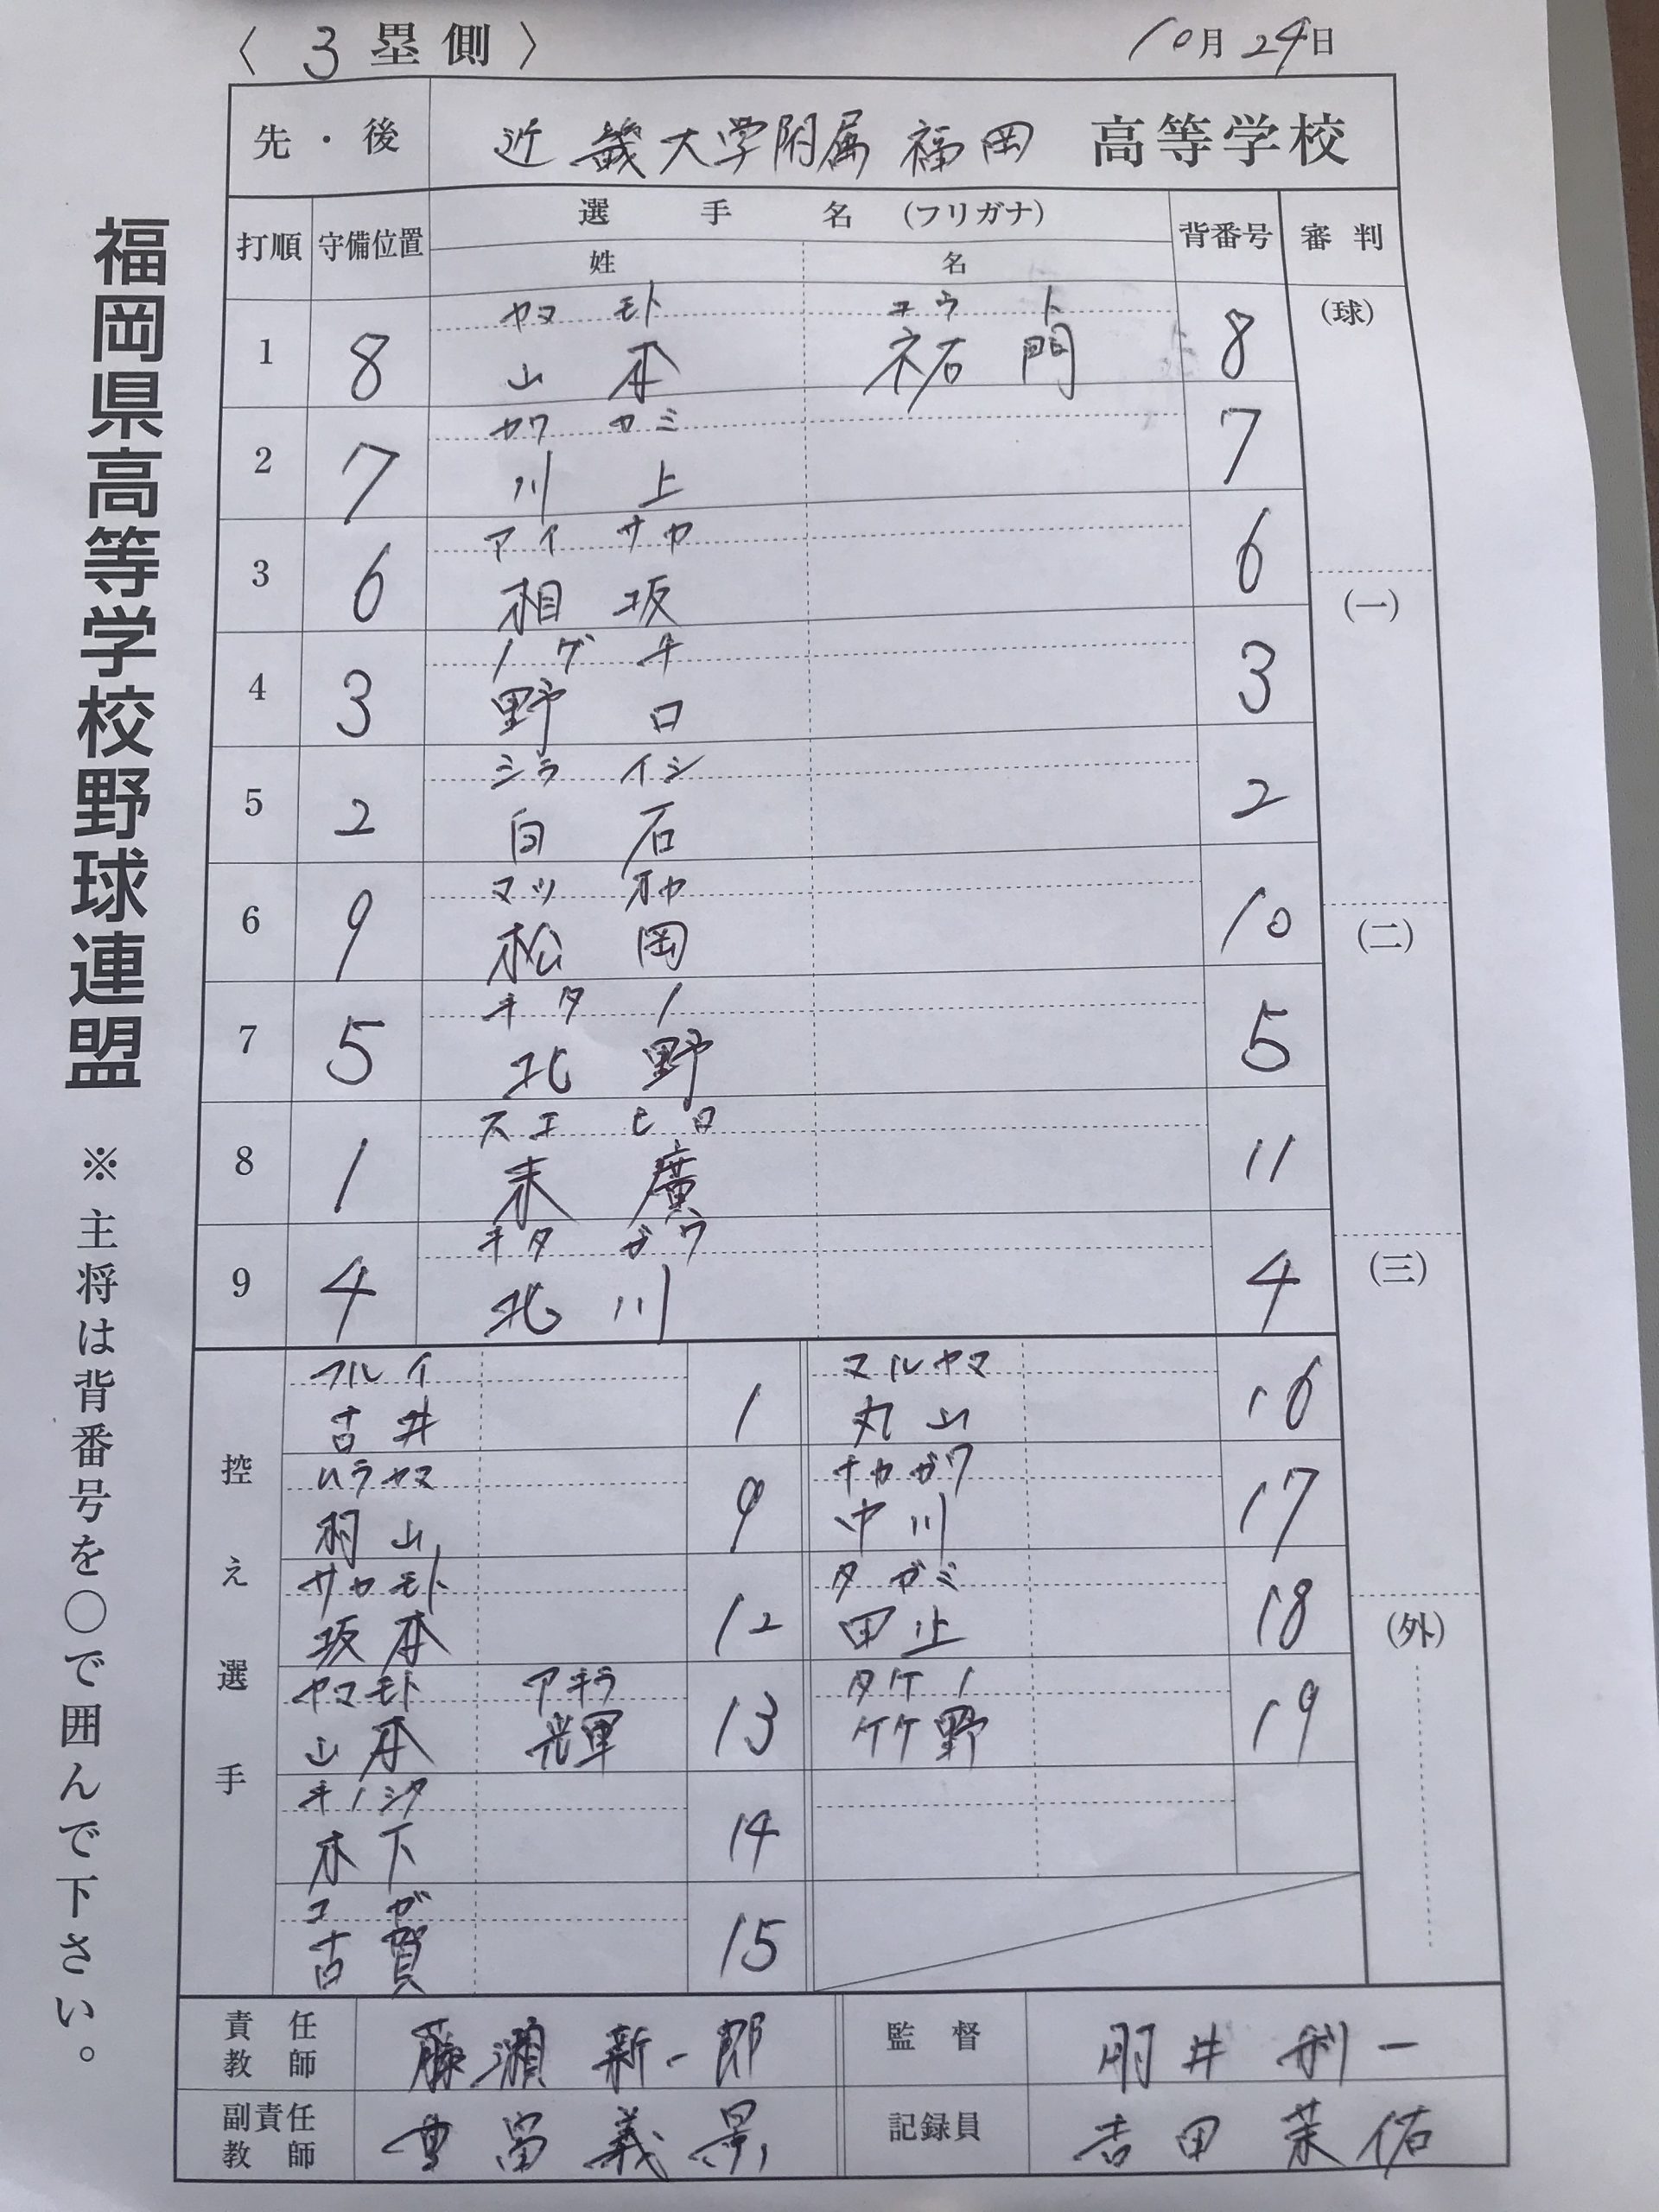 〈 3 塁側 〉
10月24日
先・後 近畿大学附属福岡 高等学校
打順 守備位置 選手名 (フリガナ) 背番号 審判
姓 名
ヤマ モト ユウ ト
1 8 山本 祐門 8
(球)
カワ カミ
2 7 川上 7
アイ サカ
3 6 相坂 6
(一)
ノグ チ
4 3 野口 3
シラ イシ
5 2 白石 2
マツ オカ
6 9 松岡 10
(二)
キタ ノ
7 5 北野 5
スエ ヒロ
8 1 末廣 11
キタ ガワ
9 4 北川 4
(三)
控え選手
フルイ マルヤマ
古井 1 丸山 16
ムラヤマ ナカガワ
村山 9 中川 17
サカモト タガミ
坂本 12 田上 18
(外)
ヤマモト アキラ タケノ
山本 輝 13 竹野 19
キノシタ
木下 14
コガ
古賀 15
責任教師 藤瀬 新一郎 監督 井 利一
副責任教師 重冨 義 記録員 吉田 茉佑
福岡県高等学校野球連盟 ※主将は背番号を○で囲んで下さい。